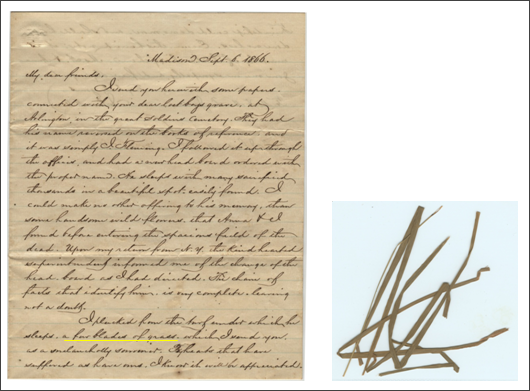 Madison, Sept 6, 1866.
My dear friends.
I send you herewith some papers
connected with your dear lost boys grave, at
Arlington in the great soldiers cemetery. They had
his name on the books of reference and
it was simply I followed it up through
the offices, and had a new head board ordered with
the proper name. He sleeps with many sacrificed
thousands in a beautiful spot, easily found. I
could make no other offering to his memory, than
some handsome wild flowers, that Anna & I
found before entering the spacious field of the
dead. Upon my return from N.Y. the kind hearted
superintendent informed me of the change of the
head board as I had directed. The chain of
facts that identify him, is very complete, leaving
not a doubt.
I plucked from the turf under which he
sleeps, a few blades of grass, which I send you,
as a melancholy souvenir. Hearts that have
suffered as have ours, I know it will be appreciated.